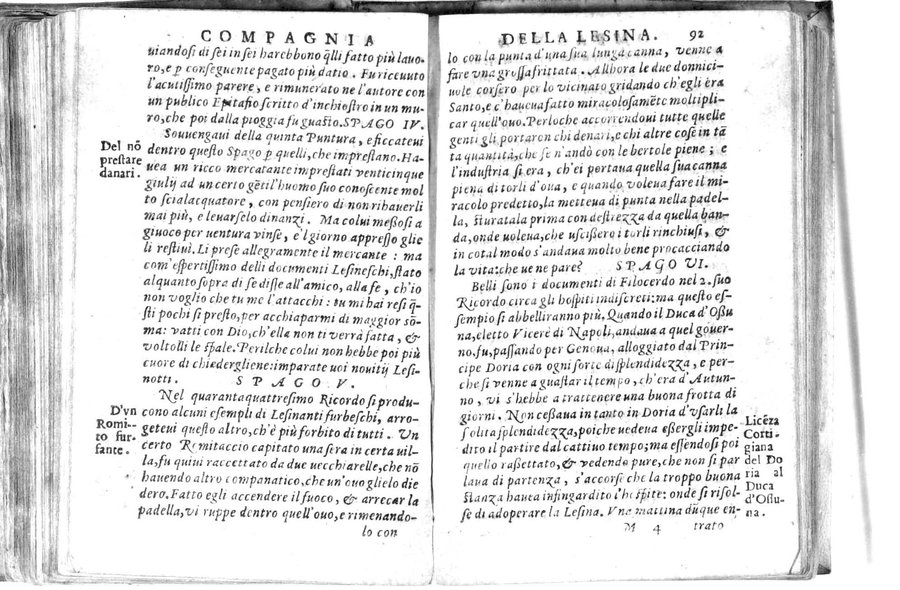 COMPAGNIA
uiandosi di sei in sei harebbono q̃lli fatto più lauo-
ro, e p̱ conseguente pagato più datio. Fu riceuuto
l'acutissimo parere, e rimunerato ne l'autore con
un publico Epitafio scritto d'inchiostro in un mu-
ro, che poi dalla pioggia fu guasto. SPAGO IV.
Souuengaui della quinta Puntura, e ficcateui
dentro questo Spago p̱ quelli, che imprestano. Ha-
uea un ricco mercatante imprestati venticinque
giulij ad un certo gẽtil'huomo suo conoscente mol
to scialacquatore, con pensiero di non rihauerli
mai più, e leuarselo dinanzi. Ma colui meßosi a
giuoco per uentura vinse, e'l giorno appresso glie
li restituì. Li prese allegramente il mercante: ma
com'espertissimo delli documenti Lesineschi, stato
alquanto sopra di se disse all'amico, alla fe, ch'io
non voglio che tu me l'attacchi: tu mi hai resi q̃-
sti pochi sì presto, per acchiaparmi di maggior sõ-
ma: vatti con Dio, ch'ella non ti verrà fatta, &
voltolli le spale. Perilche colui non hebbe poi più
cuore di chiedergliene: imparate uoi nouitij Lesi-
notti. SPAGO V.
Nel quarantaquattresimo Ricordo si produ-
cono alcuni esempli di Lesinanti furbeschi, arro-
geteui questo altro, ch'è più forbito di tutti. Un
certo Romitaccio capitato una sera in certa uil-
la, fu quiui raccettato da due uecchiarelle, che nõ
hauendo altro companatico, che un'ouo glielo die
dero. Fatto egli accendere il fuoco, & arrecar la
padella, vi ruppe dentro quell'ouo, e rimenando-
lo con
Del nõ
prestare
danari.
D'vn
Romi--
to fur-
fante.
DELLA LESINA. 92
lo con la punta d'una sua lunga canna, venne a
fare vna grossa frittata. Allhora le due donnici-
uole corsero per lo vicinato gridando ch'egli era
Santo, e c'haueua fatto miracolosamẽte moltipli-
car quell'ouo. Perloche accorrendoui tutte quelle
genti gli portaron chi denari, e chi altre cose in tã
ta quantità, che se n'andò con le bertole piene; e
l'industria si era, ch'ei portaua quella sua canna
piena di torli d'oua, e quando voleua fare il mi-
racolo predetto, la metteua di punta nella padel-
la, sturatala prima con destrezza da quella ban-
da, onde uoleua, che uscissero i torli rinchiusi, &
in cotal modo s'andaua molto bene procacciando
la vita: che ue ne pare? SPAGO VI.
Belli sono i documenti di Filocerdo nel 2. suo
Ricordo circa gli hospiti indiscreti: ma questo es-
sempio si abbelliranno più. Quando il Duca d'Oßu
na, eletto Vicerè di Napoli, andaua a quel gouer-
no, fu, passando per Genoua, alloggiato dal Prin-
cipe Doria con ogni sorte di splendidezza, e per-
che si venne a guastar il tempo, ch'era d'Autun-
no, vi s'hebbe a trattenere una buona frotta di
giorni. Non ceßaua in tanto in Doria d'vsarli la
solita splendidezza, poiche vedeua eßergli impe-
dito il partire dal cattiuo tempo; ma essendosi poi
quello raßettato, & vedendo pure, che non si par
laua di partenza, s'accorse che la troppo buona
stanza haueua infingardito l'hospite: onde si risol-
se di adoperare la Lesina. Vna mattina dũque en-
M 4 trato
Licẽza
Corti-
giana
del Do
ria al
Duca
d'Ossu-
na.